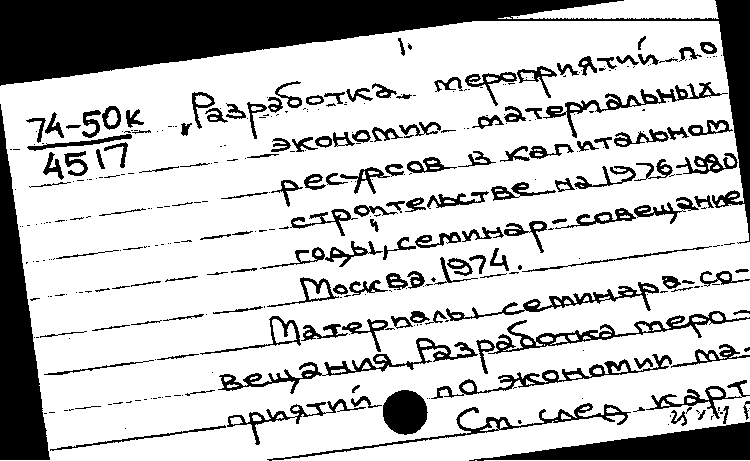 1.
74-50к
4517
„Разработка мероприятий по
экономии материальных
ресурсов в капитальном
строительстве на 1976-1980
годы", семинар-совещание
Москва. 1974.
Материалы семинара-со-
вещания „Разработка меро-
приятий по экономии ма-
См. след. карт